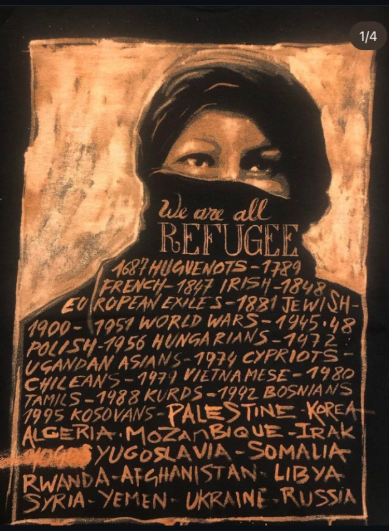 1/4
We are all
REFUGEE
1687 HUGUENOTS - 1789
FRENCH - 1847 IRISH - 1848
EUROPEAN EXILES - 1881 JEWISH -
1900 - 1951 WORLD WARS - 1945.48
POLISH - 1956 HUNGARIANS - 1972
UGANDAN ASIANS - 1974 CYPRIOTS -
CHILEANS - 1979 VIETNAMESE - 1980
TAMILS - 1988 KURDS - 1992 BOSNIANS
1995 KOSOVANS - PALESTINE - KOREA
ALGERIA - MOZAMBIQUE - IRAK
YUGOSLAVIA - SOMALIA
RWANDA - AFGHANISTAN - LIBYA
SYRIA - YEMEN - UKRAINE - RUSSIA